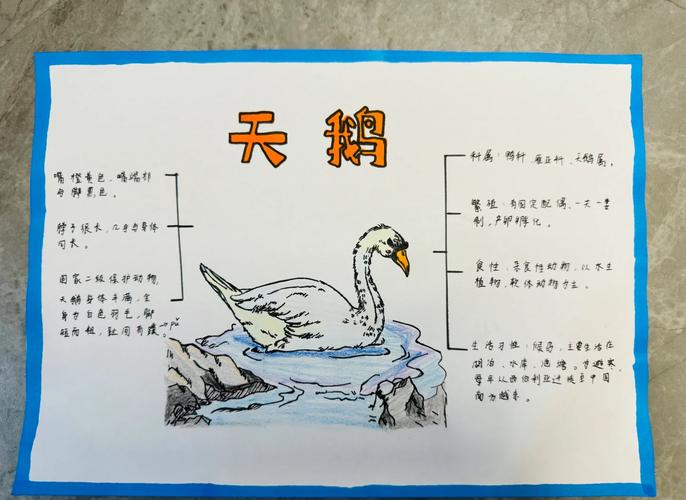 天 鹅
嘴橙黄色，嘴端部
与脚黑色。
脖子很长，几乎与身体
同长。
国家二级保护动物，
天鹅身体丰满，全
身为白色羽毛，脚
短而粗，趾间有蹼。→pǔ
科属：鸭科、雁亚科、天鹅属。
繁殖：有固定配偶、一夫一妻
制，产卵孵化。
食性：杂食性动物，以水生
植物，软体动物为主。
生活习性：候鸟，主要生活在
湖泊、水库、池塘。
每年从西伯利亚迁徙至中国
南方越冬。